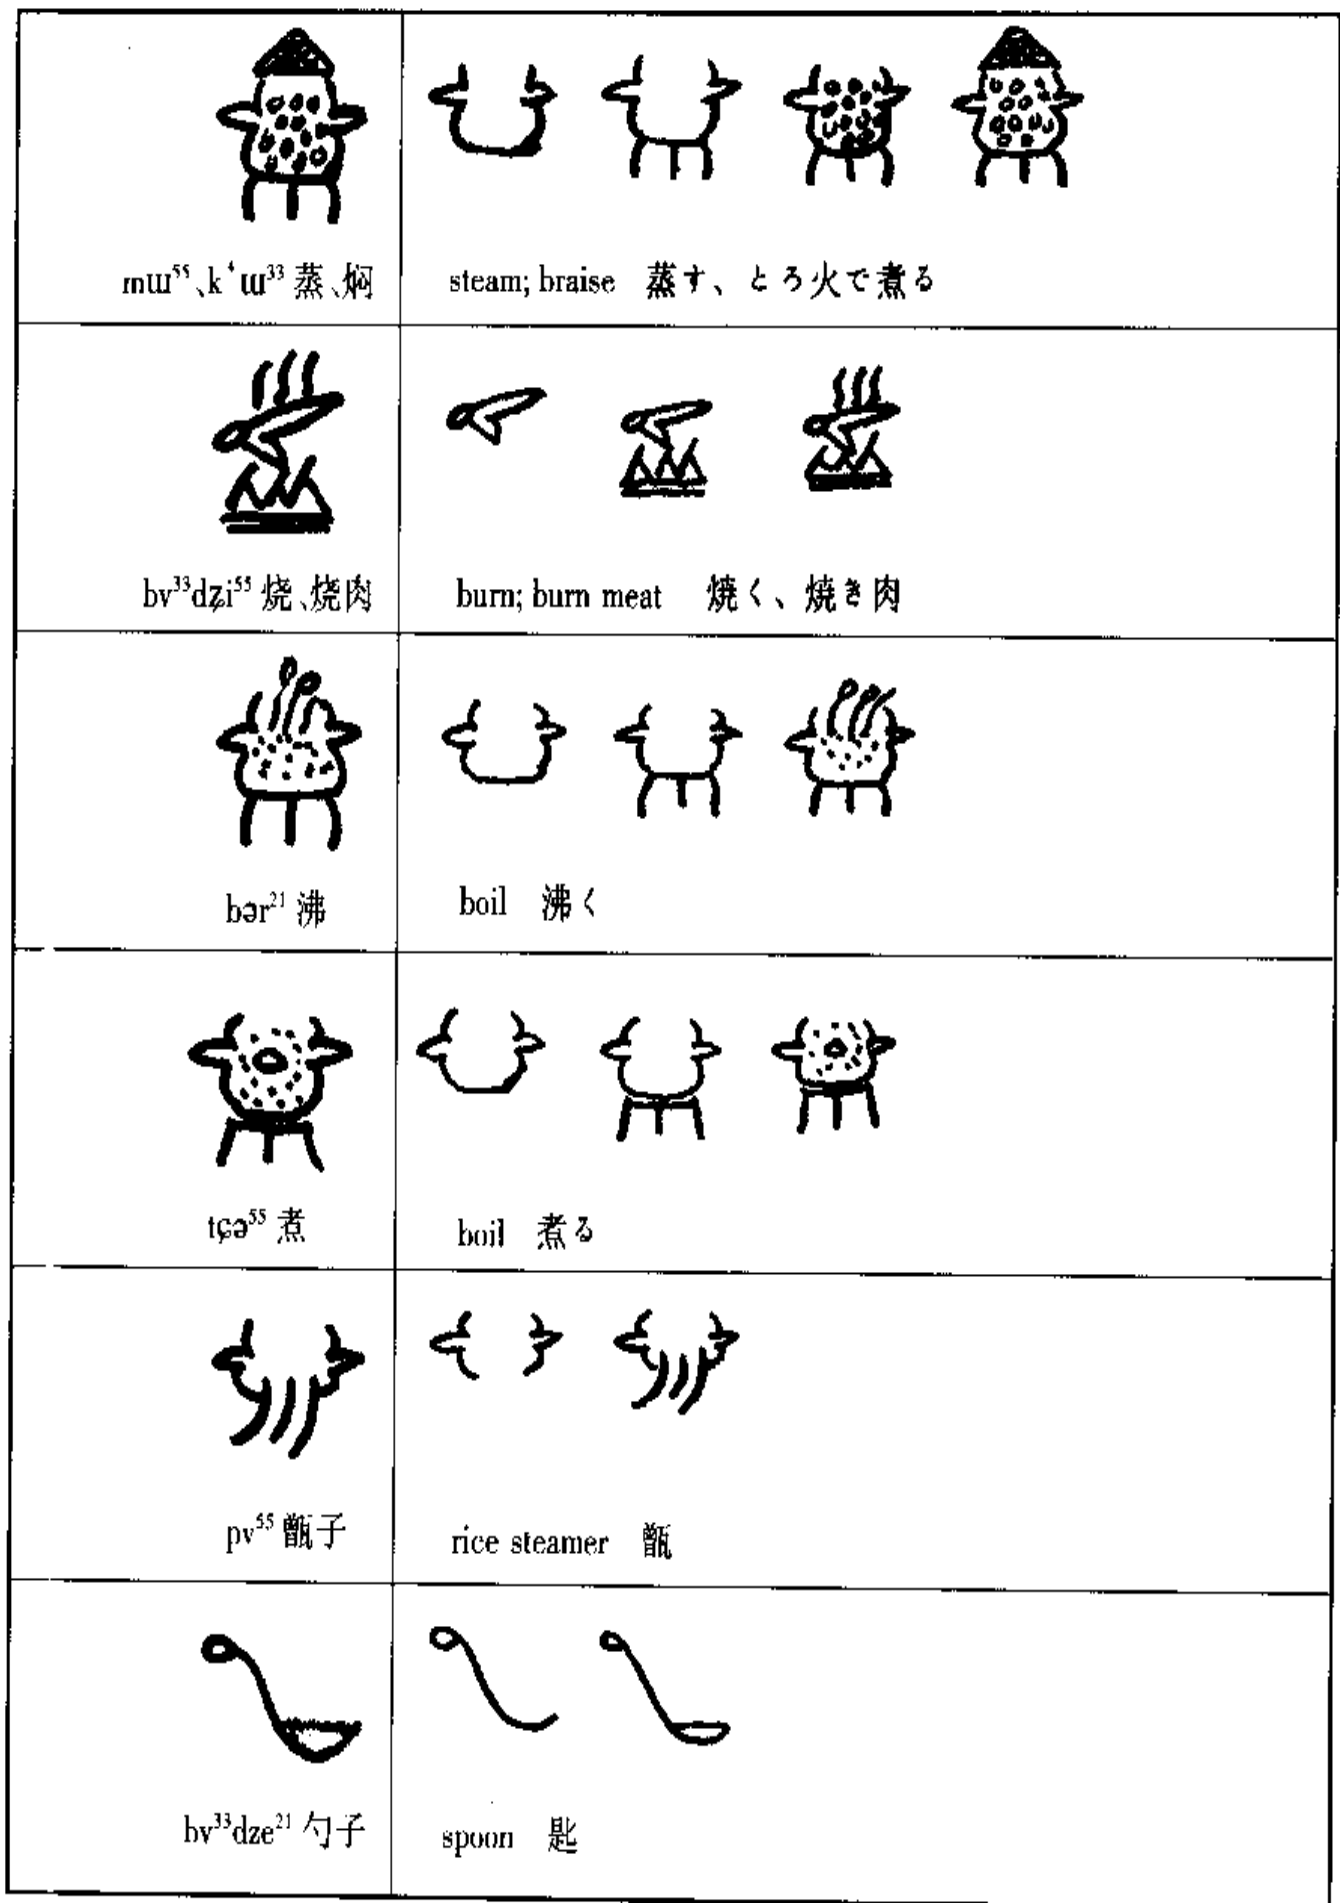 mɯ⁵⁵、kʻɯ³³ 蒸、焖
steam; braise 蒸す、とろ火で煮る
bv³³dʑi⁵⁵ 烧、烧肉
burn; burn meat 焼く、焼き肉
bər²¹ 沸
boil 沸く
tɕə⁵⁵ 煮
boil 煮る
pv⁵⁵ 甑子
rice steamer 甑
bv³³dze²¹ 勺子
spoon 匙